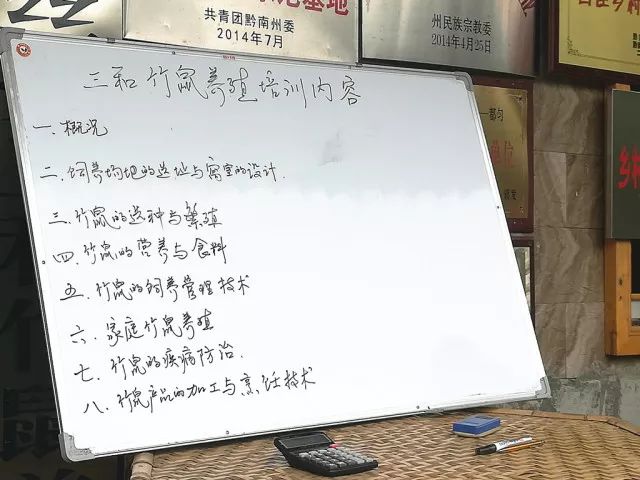 共青团黔南州委
2014年7月
州民族宗教委
2014年4月25日
三和竹鼠养殖培训内容
一、概况
二、饲养场地的选址与窝室的设计.
三、竹鼠的选种与繁殖
四、竹鼠的营养与食料
五、竹鼠的饲养管理技术
六、家庭竹鼠养殖
七、竹鼠的疾病防治.
八、竹鼠产品的加工与烹饪技术